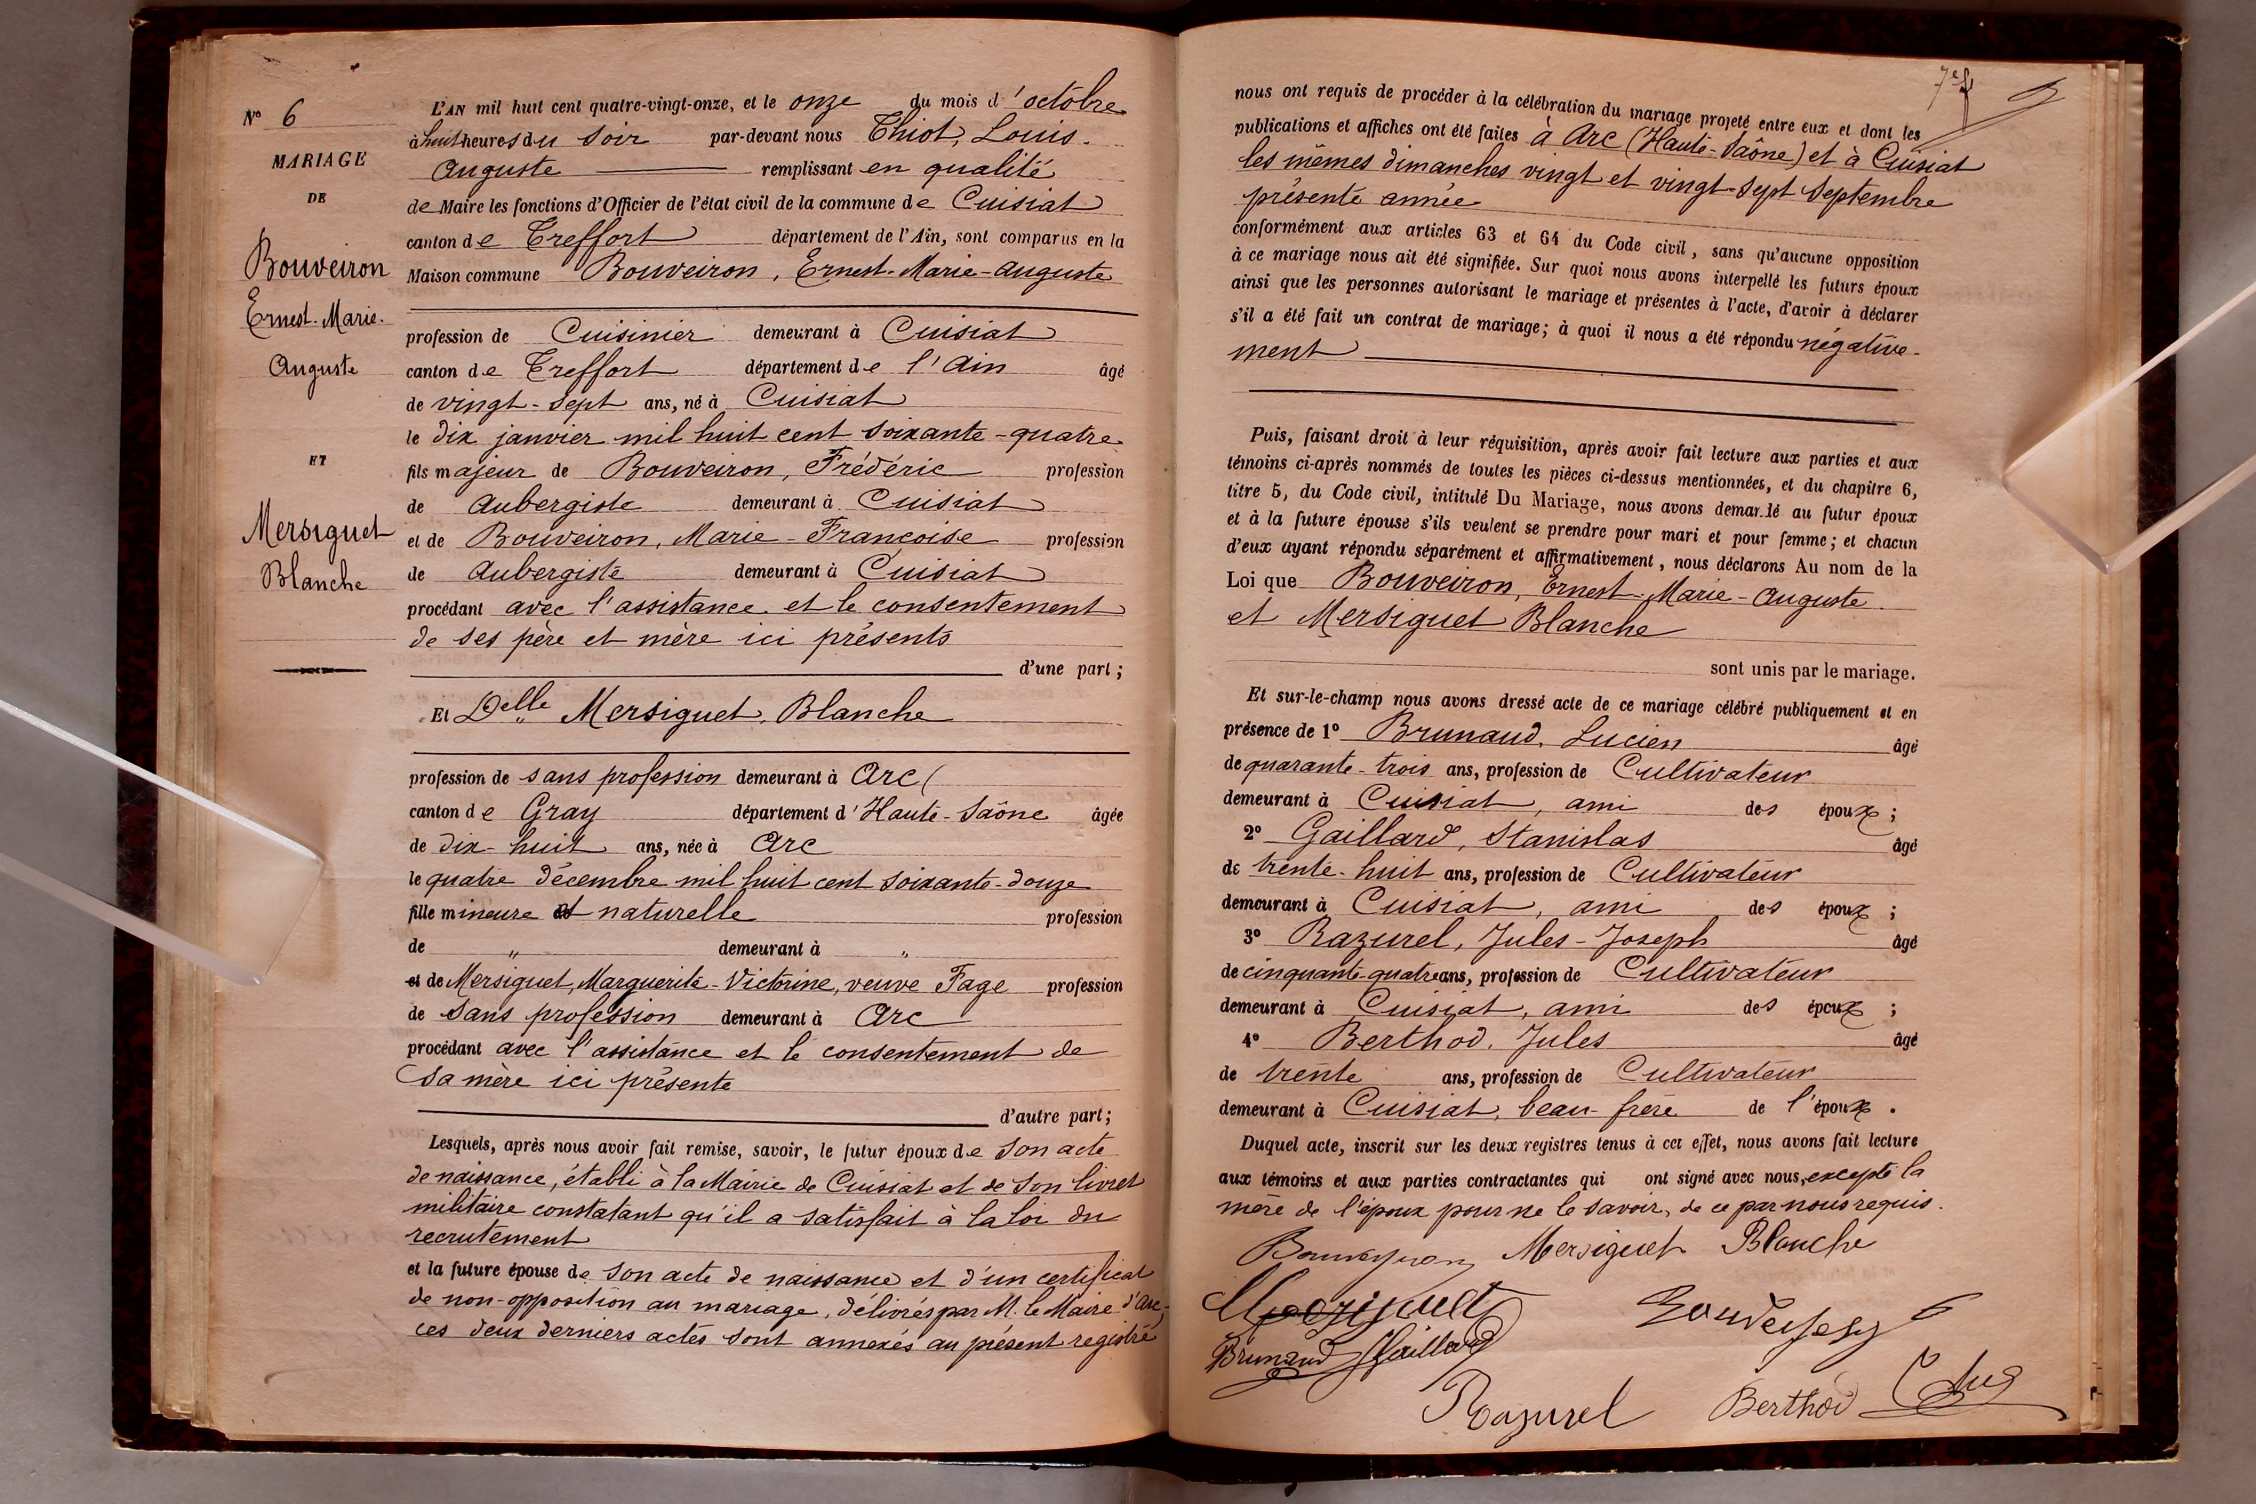 N° 6
MARIAGE
DE
Bouveiron
Ernest-Marie-
Auguste
ET
Mersiguet
Blanche
L'AN mil huit cent quatre-vingt-onze, et le onze du mois d'octobre
à huit heures du soir par-devant nous Thiot, Louis-
Auguste remplissant en qualité
de Maire les fonctions d'Officier de l'état civil de la commune de Cuisiat
canton de Treffort département de l'Ain, sont comparus en la
Maison commune Bouveiron, Ernest-Marie-Auguste
profession de Cuisinier demeurant à Cuisiat
canton de Treffort département de l'Ain âgé
de vingt-sept ans, né à Cuisiat
le dix janvier mil huit cent soixante-quatre
fils majeur de Bouveiron, Frédéric profession
de aubergiste demeurant à Cuisiat
et de Bouveiron, Marie-Françoise profession
de aubergiste demeurant à Cuisiat
procédant avec l'assistance et le consentement
de ses père et mère ici présents
d'une part;
Et Delle Mersiguet, Blanche
profession de sans profession demeurant à Arc (
canton de Gray département d'Haute-Saône âgée
de dix-huit ans, née à Arc
le quatre décembre mil huit cent soixante-douze
fille mineure et naturelle profession
de " demeurant à "
et de Mersiguet, Marguerite-Victorine, veuve Fage profession
de sans profession demeurant à Arc
procédant avec l'assistance et le consentement de
sa mère ici présente
d'autre part;
Lesquels, après nous avoir fait remise, savoir, le futur époux de son acte
de naissance, établi à la Mairie de Cuisiat et de son livret
militaire constatant qu'il a satisfait à la loi du
recrutement
et la future épouse de son acte de naissance et d'un certificat
de non-opposition au mariage, délivrés par M. le Maire d'Arc,
ces deux derniers actes sont annexés au présent registre
7e f
nous ont requis de procéder à la célébration du mariage projeté entre eux et dont les
publications et affiches ont été faites à Arc (Haute-Saône) et à Cuisiat
les mêmes dimanches vingt et vingt-sept septembre
présente année
conformément aux articles 63 et 64 du Code civil, sans qu'aucune opposition
à ce mariage nous ait été signifiée. Sur quoi nous avons interpellé les futurs époux
ainsi que les personnes autorisant le mariage et présentes à l'acte, d'avoir à déclarer
s'il a été fait un contrat de mariage; à quoi il nous a été répondu négative-
ment
Puis, faisant droit à leur réquisition, après avoir fait lecture aux parties et aux
témoins ci-après nommés de toutes les pièces ci-dessus mentionnées, et du chapitre 6,
titre 5, du Code civil, intitulé Du Mariage, nous avons demandé au futur époux
et à la future épouse s'ils veulent se prendre pour mari et pour femme; et chacun
d'eux ayant répondu séparément et affirmativement, nous déclarons Au nom de la
Loi que Bouveiron, Ernest-Marie-Auguste
et Mersiguet Blanche
sont unis par le mariage.
Et sur-le-champ nous avons dressé acte de ce mariage célébré publiquement et en
présence de 1° Brunaud, Lucien âgé
de quarante-trois ans, profession de Cultivateur
demeurant à Cuisiat, ami des époux;
2° Gaillard, Stanislas âgé
de trente-huit ans, profession de Cultivateur
demeurant à Cuisiat, ami des époux;
3° Razurel, Jules-Joseph âgé
de cinquante-quatre ans, profession de Cultivateur
demeurant à Cuisiat, ami des époux;
4° Berthod, Jules âgé
de trente ans, profession de Cultivateur
demeurant à Cuisiat, beau-frère de l'époux.
Duquel acte, inscrit sur les deux registres tenus à cet effet, nous avons fait lecture
aux témoins et aux parties contractantes qui ont signé avec nous, excepté la
mère de l'époux pour ne le savoir, de ce par nous requis.
Mersiguet Blanche
Brunaud Gaillard
Razurel Berthod